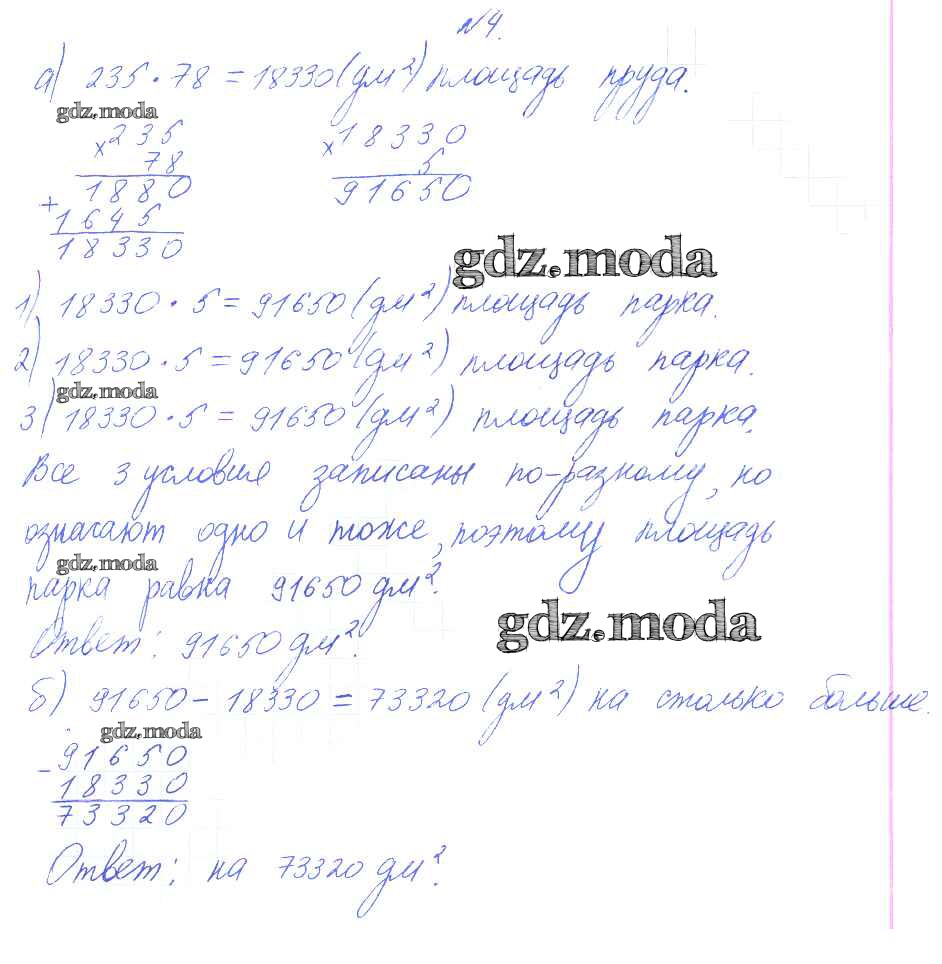 №4.
а) 235 · 78 = 18330 (дм²) площадь пруда.
gdz.moda
× 235 × 18330
78 5
1880 91650
+ 1645
18330
gdz.moda
1) 18330 · 5 = 91650 (дм²) площадь парка.
2) 18330 · 5 = 91650 (дм²) площадь парка.
gdz.moda
3) 18330 · 5 = 91650 (дм²) площадь парка.
Все 3 условия записаны по-разному, но
означают одно и тоже, поэтому площадь
gdz.moda
парка равна 91650 дм².
gdz.moda
Ответ: 91650 дм².
б) 91650 - 18330 = 73320 (дм²) на столько больше.
gdz.moda
- 91650
18330
73320
Ответ: на 73320 дм².